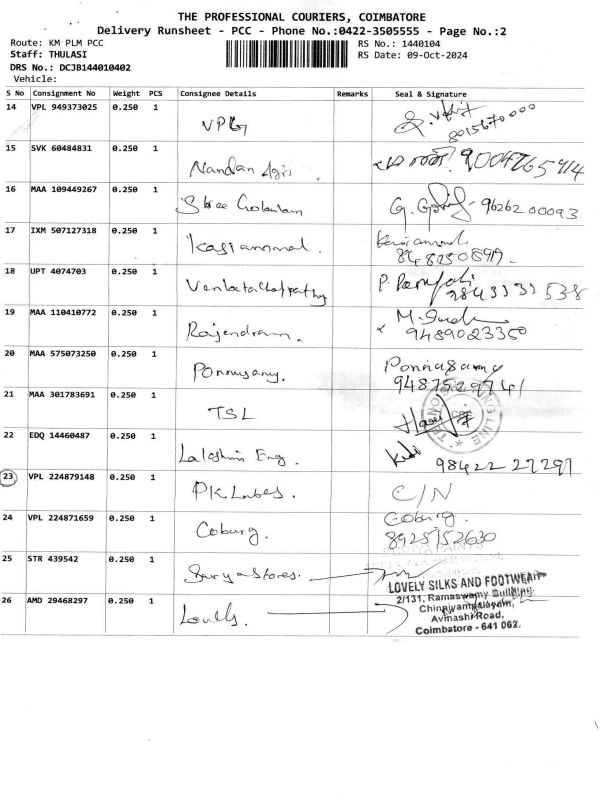 THE PROFESSIONAL COURIERS, COIMBATORE
Delivery Runsheet - PCC - Phone No.:0422-3505555 - Page No.:2
Route: KM PLM PCC
RS No.: 1440104
Staff: THULASI
RS Date: 09-Oct-2024
DRS No.: DCJB144010402
Vehicle:
S No Consignment No Weight PCS Consignee Details Remarks Seal & Signature
14 VPL 949373025 0.250 1 VPG
8015670000
15 SVK 60484831 0.250 1 Nandan Agri 9004765414
16 MAA 109449267 0.250 1 Shree 9626200093
17 IXM 507127318 0.250 1 Kasiammal.
18 UPT 4074703 0.250 1 Venkatachalapathy P.
2843333538
19 MAA 110410772 0.250 1 Rajendran. M.
9489023350
20 MAA 575073250 0.250 1 Ponnusamy. Ponnusamy
9487529741
21 MAA 301783691 0.250 1 TSL
22 EDQ 14460487 0.250 1 Lakshmi Eng.
98422 27297
23 VPL 224879148 0.250 1 PK Lubes. C/N
24 VPL 224871659 0.250 1 Coburg. Coburg.
8925752630
25 STR 439542 0.250 1 Surya Stores.
LOVELY SILKS AND FOOTWEAR
26 AMD 29468297 0.250 1
2/131, Ramaswamy Building,
Chinniyampalayam,
Avinashi Road,
Coimbatore - 641 062.